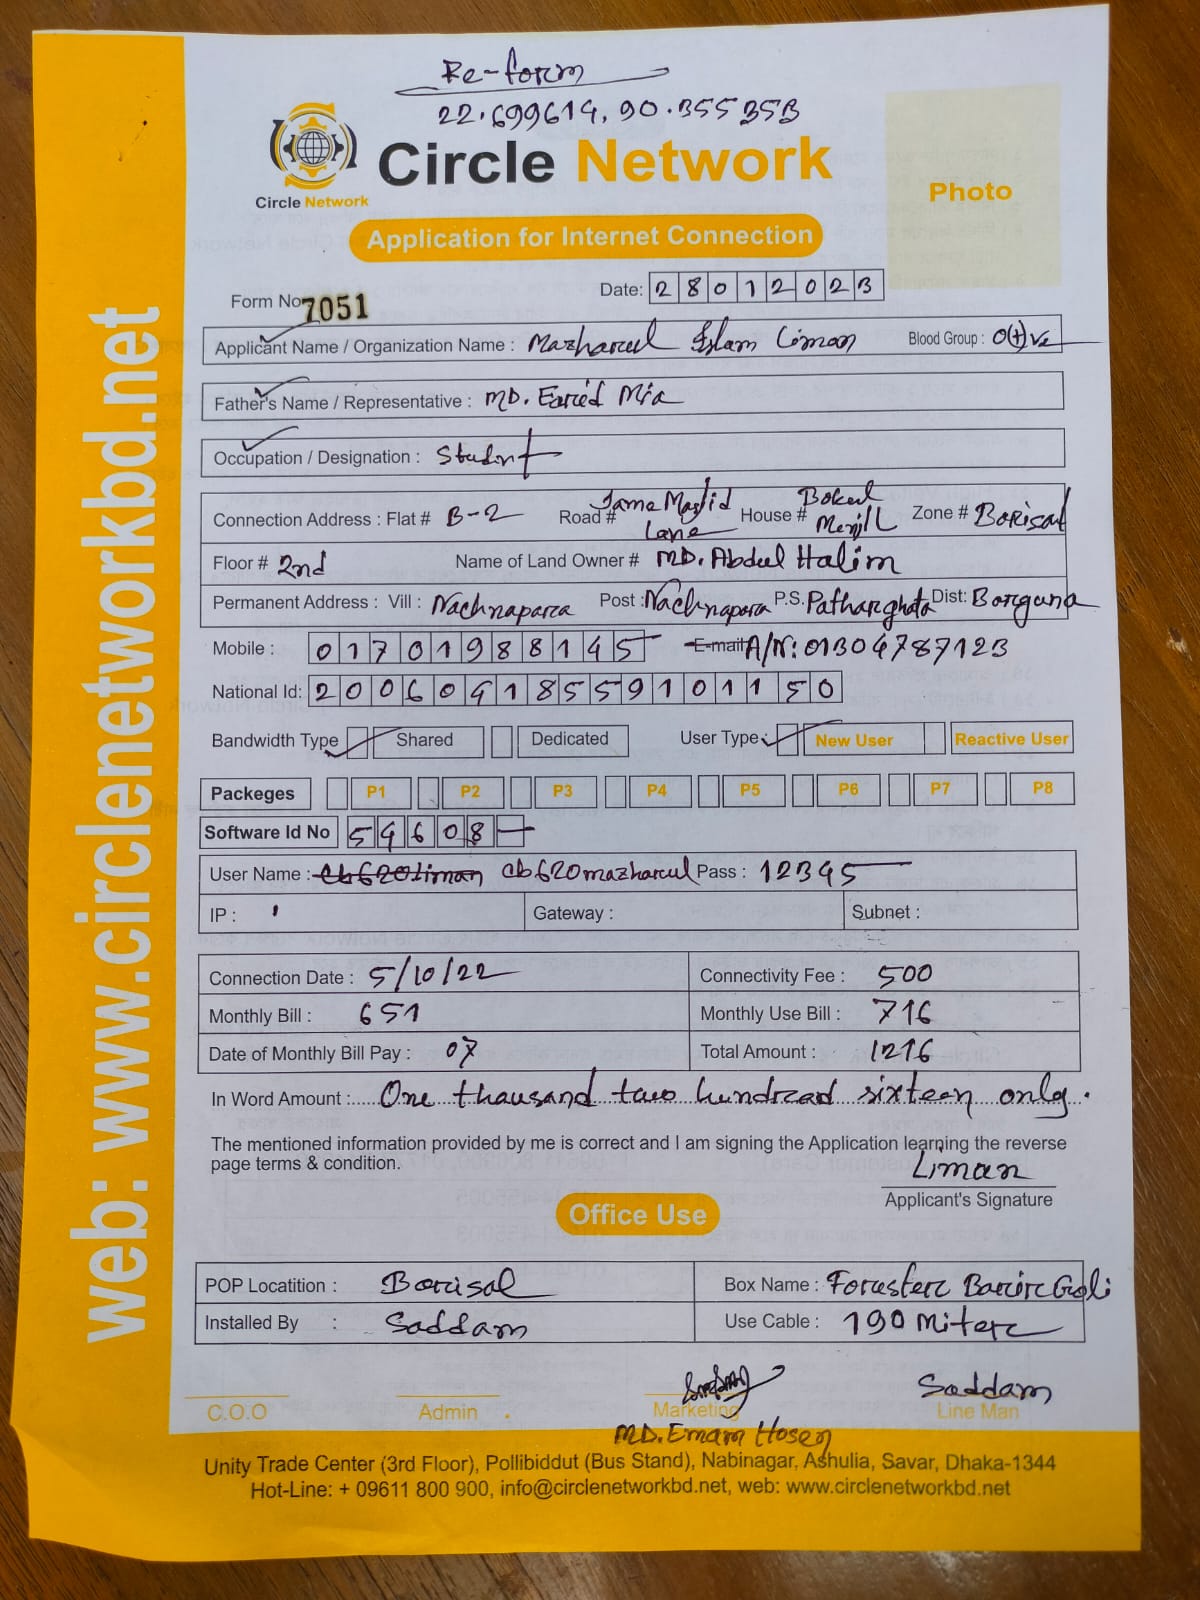 Re-form
22.699614, 90.355353
Circle Network
Circle Network
Photo
Application for Internet Connection
Form No 7051
Date: 28012023
Applicant Name / Organization Name : Mazharul Islam Liman Blood Group : O(+)ve
Father's Name / Representative : MD. Farid Mia
Occupation / Designation : Student
Connection Address : Flat # B-2 Road # Jame Masjid Lane House # Bokul Menjil Zone # Barisal
Floor # 2nd Name of Land Owner # MD. Abdul Halim
Permanent Address : Vill : Nachnapara Post : Nachnapara P.S. Patharghata Dist: Borguna
Mobile : 01701988145 E-mail A/N: 01304787123
National Id: 20060418559101150
Bandwidth Type Shared Dedicated User Type: New User Reactive User
Packeges P1 P2 P3 P4 P5 P6 P7 P8
Software Id No 54608
User Name : cb620liman cb620mazharul Pass : 12345
IP : Gateway : Subnet :
Connection Date : 5/10/22 Connectivity Fee : 500
Monthly Bill : 651 Monthly Use Bill : 716
Date of Monthly Bill Pay : 07 Total Amount : 1216
In Word Amount : One thausand two hundread sixteen only.
The mentioned information provided by me is correct and I am signing the Application learning the reverse
page terms & condition.
Liman
Applicant's Signature
Office Use
POP Locatition : Barisal Box Name : Forester Barir Goli
Installed By : Saddam Use Cable : 190 Miter
Saddam
C.O.O Admin Marketing Line Man
MD. Emam Hosen
Unity Trade Center (3rd Floor), Pollibiddut (Bus Stand), Nabinagar, Ashulia, Savar, Dhaka-1344
Hot-Line: + 09611 800 900, info@circlenetworkbd.net, web: www.circlenetworkbd.net
web: www.circlenetworkbd.net